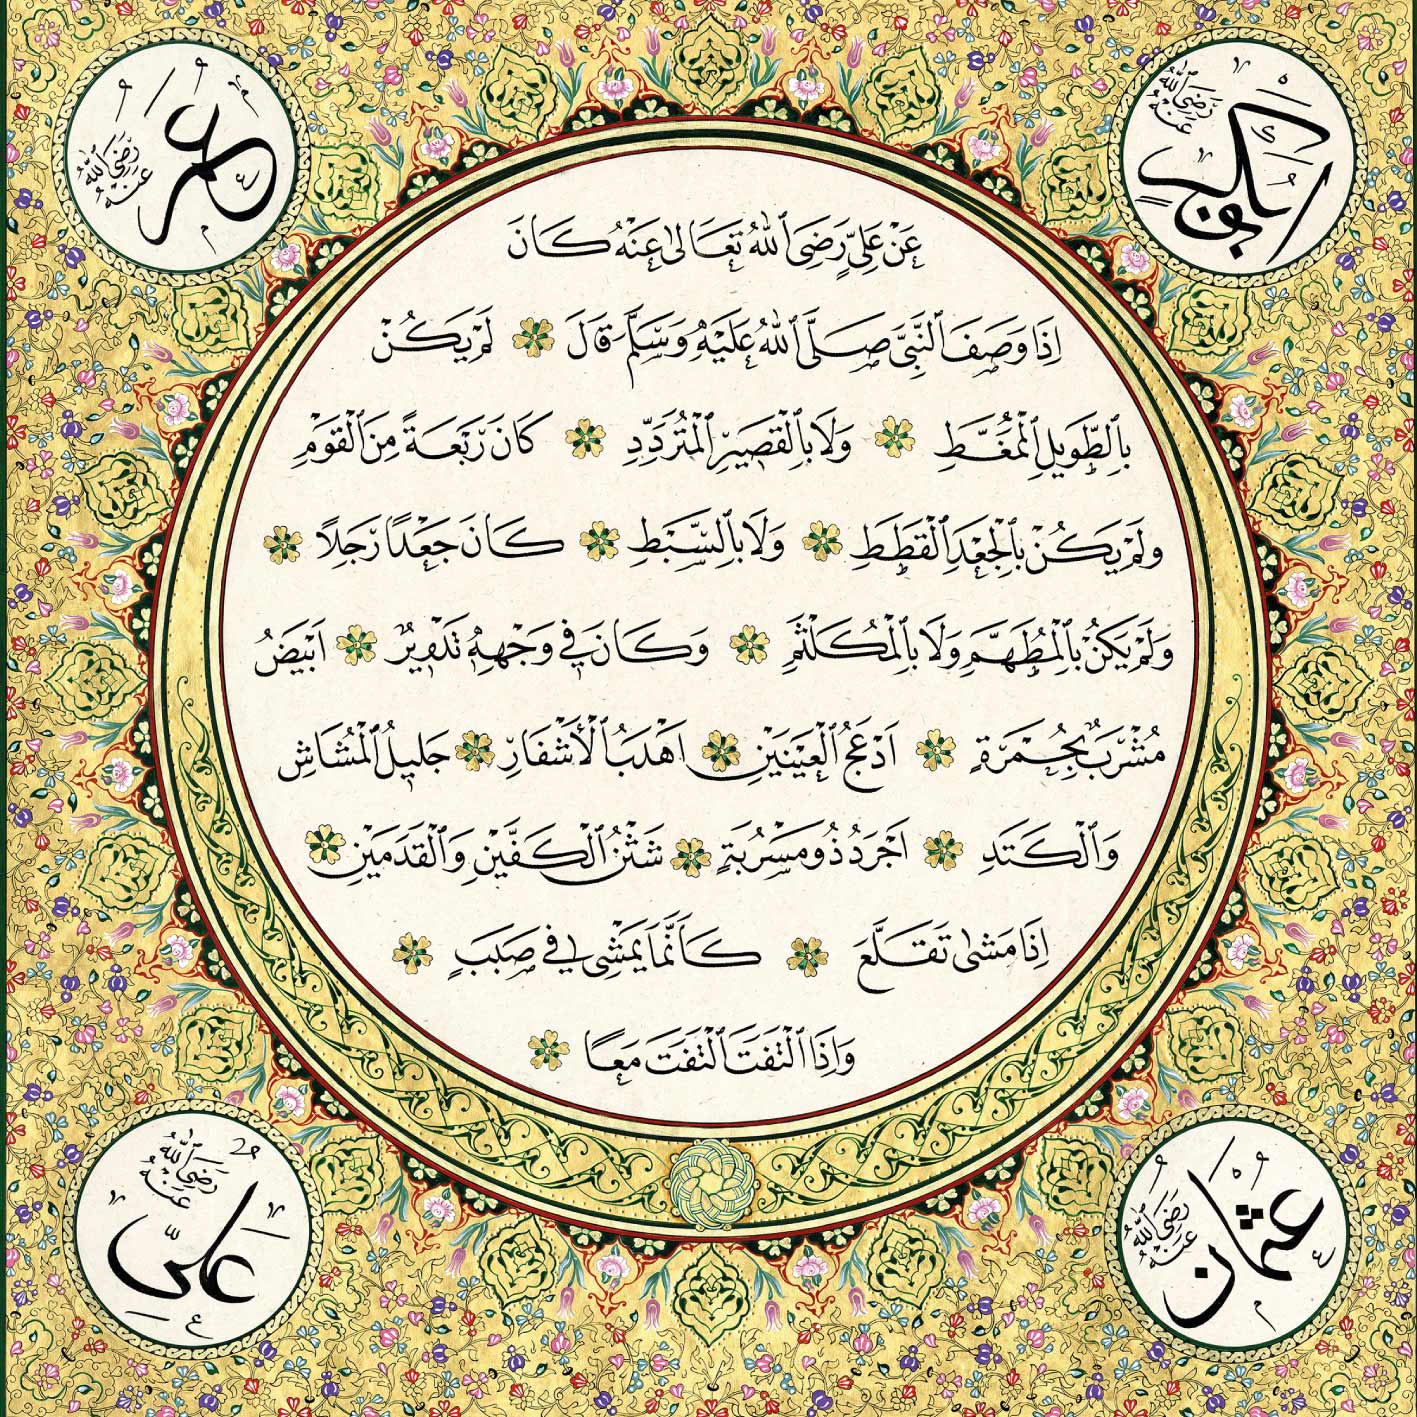 ابوبكر رضي الله عنه
عمر رضي الله عنه
عَنْ عَلِيٍّ رَضِيَ اللهُ تَعَالٰى عَنْهُ كَانَ
اِذَا وَصَفَ النَّبِيَّ صَلَّى اللهُ عَلَيْهِ وَسَلَّمَ قَالَ لَمْ يَكُنْ
بِالطَّوِيلِ الْمُمَّغَطِ وَلَا بِالْقَصِيرِ الْمُتَرَدِّدِ كَانَ رَبْعَةً مِنَ الْقَوْمِ
وَلَمْ يَكُنْ بِالْجَعْدِ الْقَطَطِ وَلَا بِالسَّبِطِ كَانَ جَعْدًا رَجِلًا
وَلَمْ يَكُنْ بِالْمُطَهَّمِ وَلَا بِالْمُكَلْثَمِ وَكَانَ فِي وَجْهِهِ تَدْوِيرٌ اَبْيَضُ
مُشْرَبٌ بِحُمْرَةٍ اَدْعَجُ الْعَيْنَيْنِ اَهْدَبُ الْاَشْفَارِ جَلِيلُ الْمُشَاشِ
وَالْكَتَدِ اَجْرَدُ ذُو مَسْرُبَةٍ شَثْنُ الْكَفَّيْنِ وَالْقَدَمَيْنِ
اِذَا مَشٰى تَقَلَّعَ كَاَنَّمَا يَمْشِي فِي صَبَبٍ
وَاِذَا الْتَفَتَ الْتَفَتَ مَعًا
عثمان رضي الله عنه
علي رضي الله عنه